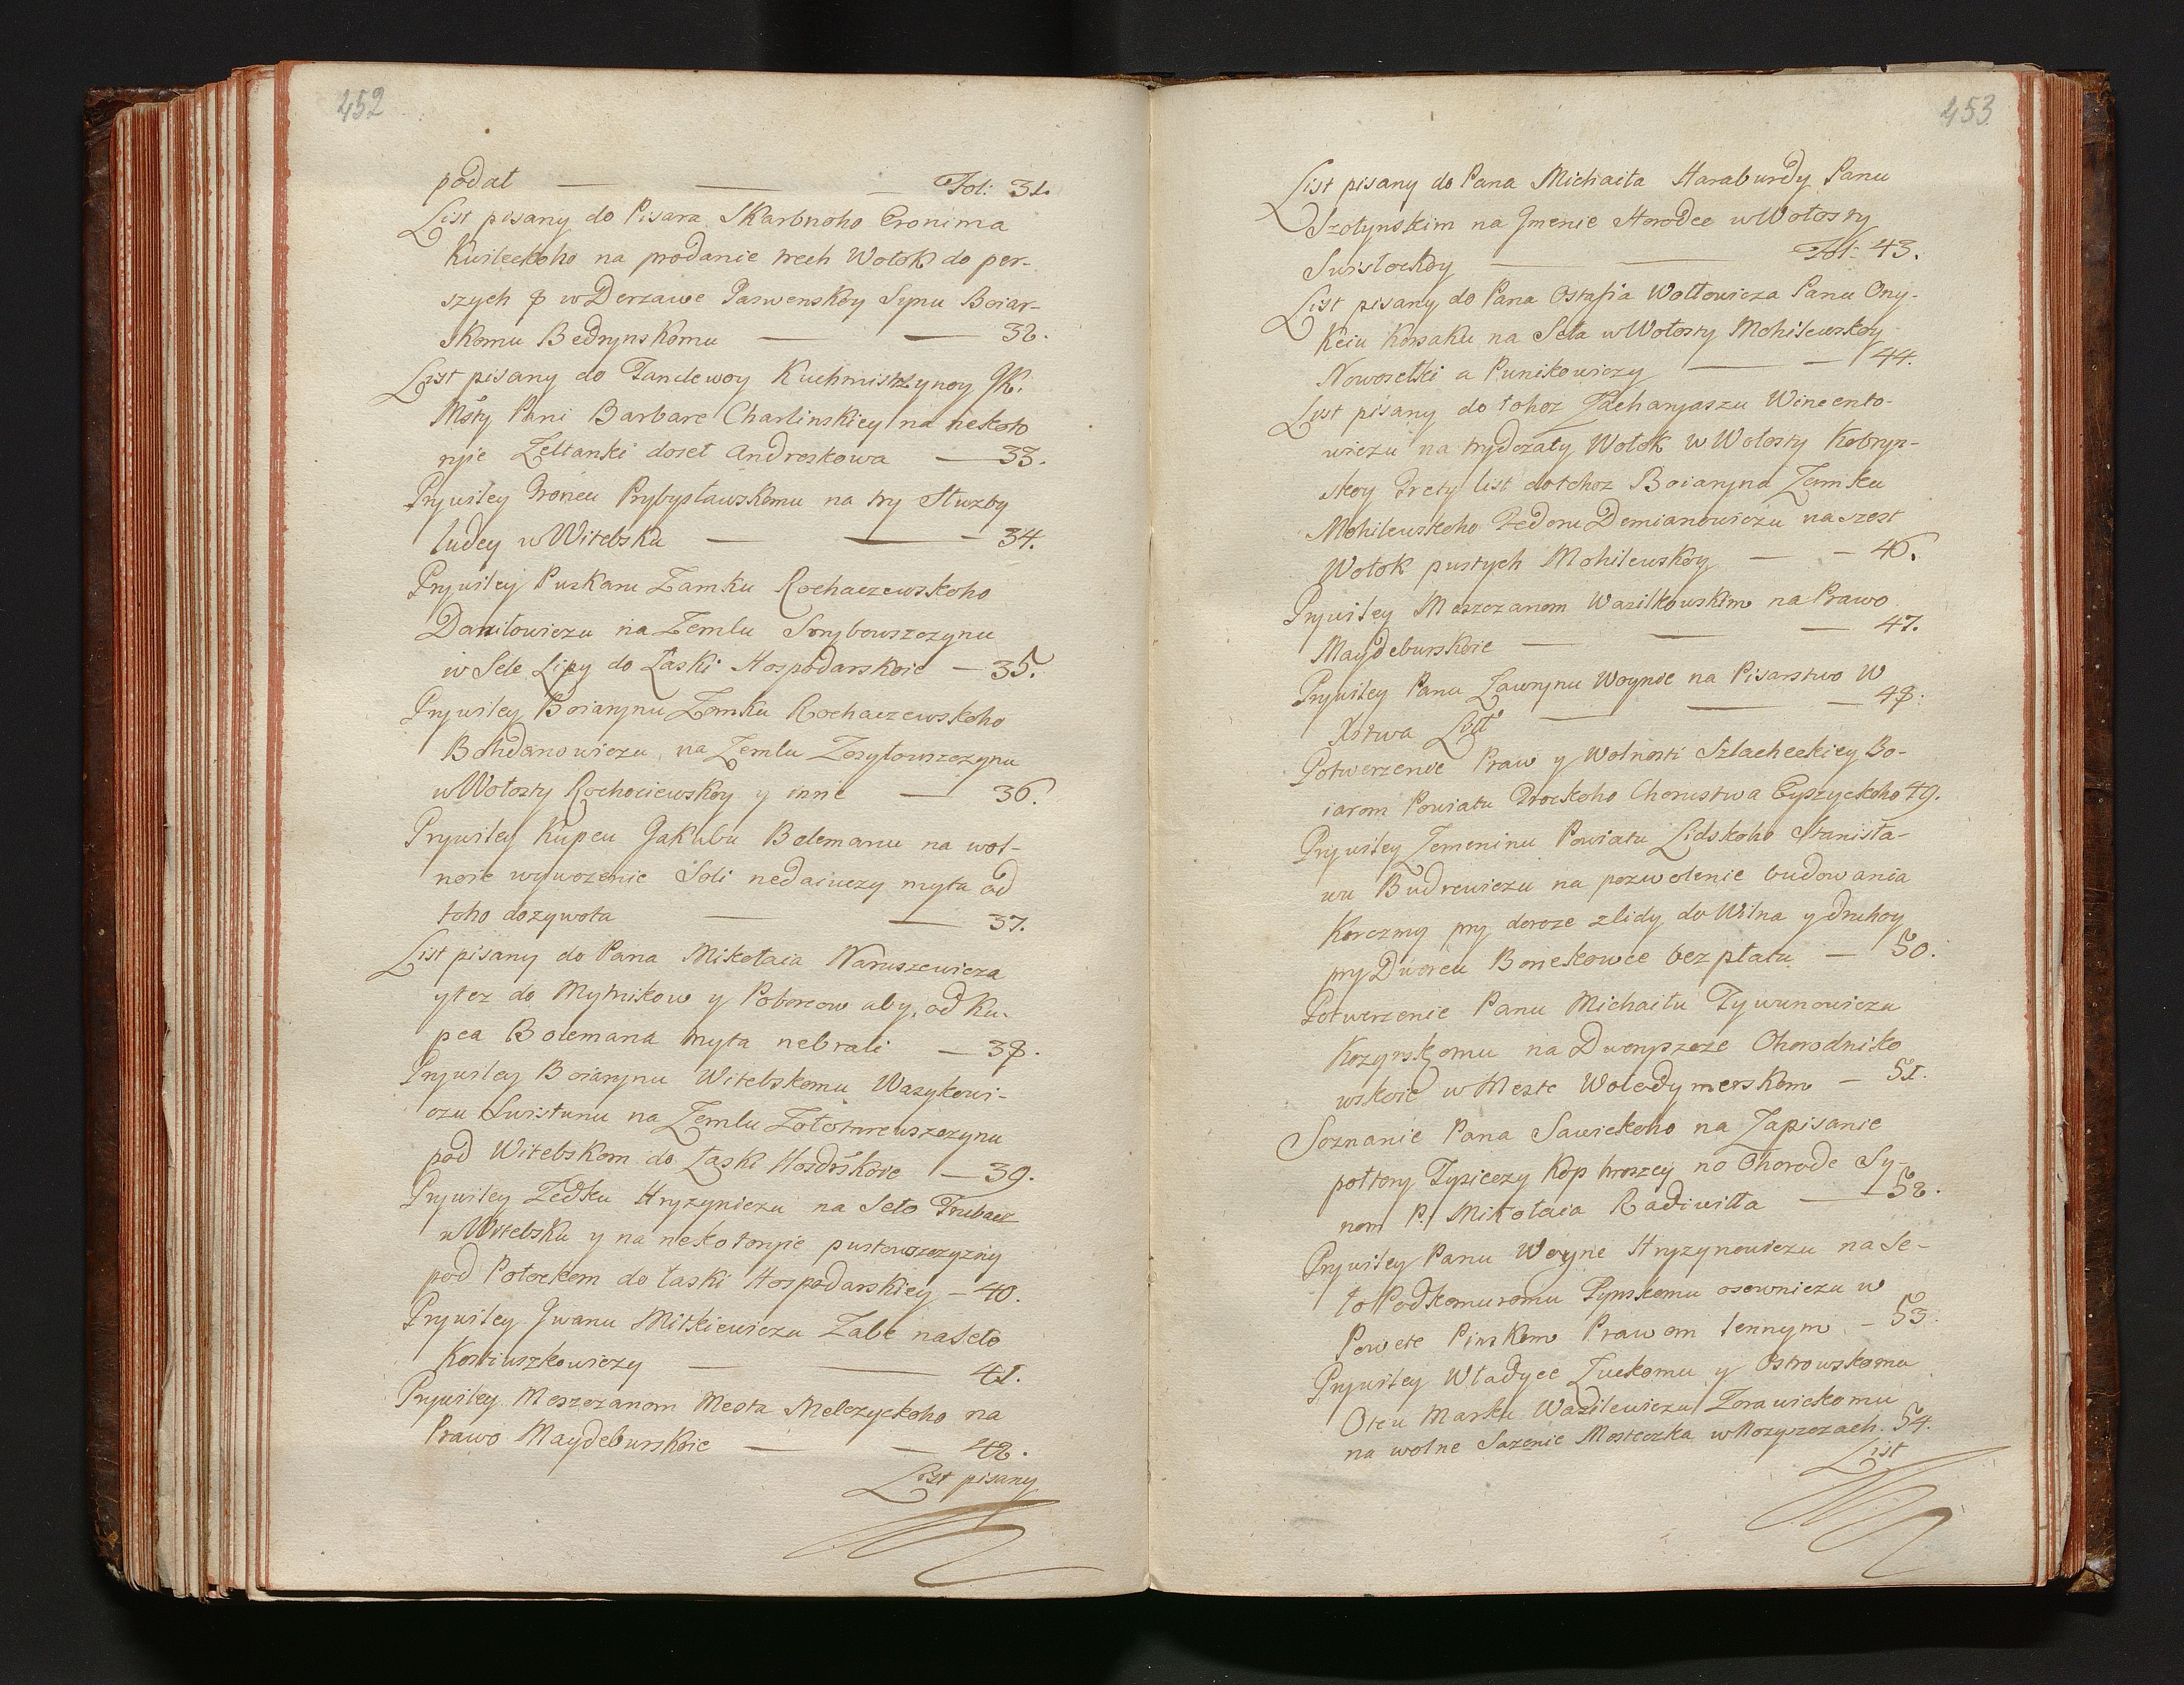 452
podał — — — Fol: 31.
List pisany do Pisara Skarbnoho Eronima
Kwileckoho na prodanie trech Wołok do per-
szych 8 w Derzawe Jaswenskoy Synu Boiar-
skomu Bedrynskomu — — 32.
List pisany do Kuchmistrzynoy JK.
Msty Pani Barbare Charlinskiey na nekoto
ryie Zeltanki doseł Androskowa — 33.
Prywiley Proncu Prybysławskomu na try Słuzby
ludey w Witebsku — — 34.
Prywiley Puszkaru Zamku Rochaczewskoho
Daniłowiczu na Zemlu Strybowszczynu
w Sele Lipy do Łaski Hospodarskoie — 35.
Prywiley Boiarynu Zamku Rochaczewskoho
Bohdanowiczu na Zemlu Zosytowszczynu
w Wołosty Rochociewskoy y inne — 36.
Prywiley Kupcu Jakubu Bolemanu na wol-
noie wywozenie Soli nedaiuczy myta od
toho dozywota — — 37.
List pisany do Pana Mikołaia Naruszewicza
ytez do Mytnikow y Poborcow aby, od Ku-
pca Bolemana myta nebrali — 38.
Prywiley Boiarynu Witebskomu Wasykowi-
czu Swistunu na Zemlu
pod Witebskom do Łaski Hosdrskoie — 39.
Prywiley Fedku Hryzyniczu na Seło Trubacz
w Witebsku y na nekotoryie pustowszczyzny
pod Połockom do łaski Hospodarskiey — 40.
Prywiley Jwanu Mitkiewiczu Zabe naSeło
Kostiuszkowiczy — — 41.
Prywiley Meszczanom Mesta Melczyckoho na
Prawo Maydeburskoie — — 42.
List pisany
453
List pisany do Pana Michaiła Haraburdy Panu
Szołynskim na Jmenie Horodec w Wołosty
Swisłockoy — — Fol: 43.
List pisany do Pana Ostafia Wołłowicza Panu Ony-
keiu Korsaku na Seła w Wołosty Mohilewskoy
Nowosełki a Punikowiczy — — 44.
List pisany do tohoz Zachanjaszu Wincento-
wiczu na trydczaty Wołok w Wołosty Kobryn-
skoy Trety list dotohoz Boiaryna Zamku
Mohilewskoho Fedoru Demianowiczu na szest
Wołok pustych Mohilewskoy — — 46.
Prywiley Meszczanom Wasilkowskim na Prawo
Maydeburskoie — — — 47.
Prywiley Panu Ławrynu Woynie na Pisarstwo W
Xstwa Litt° — — — 48.
Potwerzenie Praw y Wolnosti Szlacheckiey Bo-
iarom Powiatu Trockoho Chorustwa Eyszyckoho 49.
Prywiley Zemeninu Powiatu Lidskoho Stanisła-
wu Budrewiczu na pozwolenie budowania
Korczmy pry doroze z lidy do Wilna y druhoy
pry Dworcu Borickowce bez płatu — 50.
Potwerzenie Panu Michaiłu Tywunowiczu
Kozynskomu na Dworyszcze Ohorodniko
wskoie w Meste Wołodymerskom — 51.
Soznanie Pana Sawickoho na Zapisanie
połtory Tysieczy Kop hroszey no Ohorode Sy-
nom P. Mikołaia Radiwiłła — — 52.
Prywiley Panu Woyne Hryzynowiczu na Se-
ło Podkomuromu Pynskomu osowniczu w
Powete Pinskom Prawom lennym — 53.
Prywiley Władyce Łuckomu y Ostrowskomu
Otcu Marku Wasilewiczu Zorawickomu
na wolne Sazenie Mesteczka w Rozyszczach. 54.
List